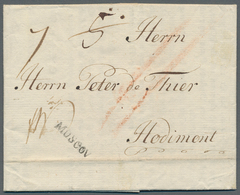 7 5 Herrn
Herrn Peter de Thier
Hodimont
MOSCOU